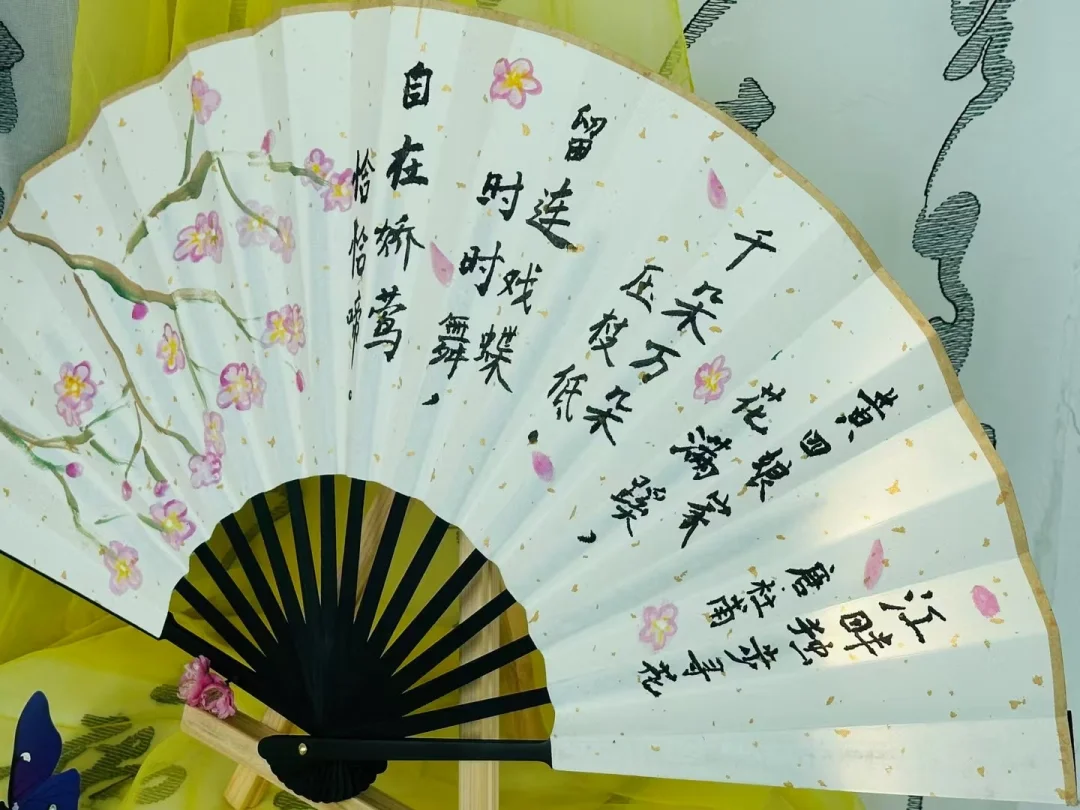 江畔独步寻花
唐杜甫
黄四娘家
花满蹊，
千朵万朵
压枝低.
留连戏蝶
时时舞，
自在娇莺
恰恰啼。